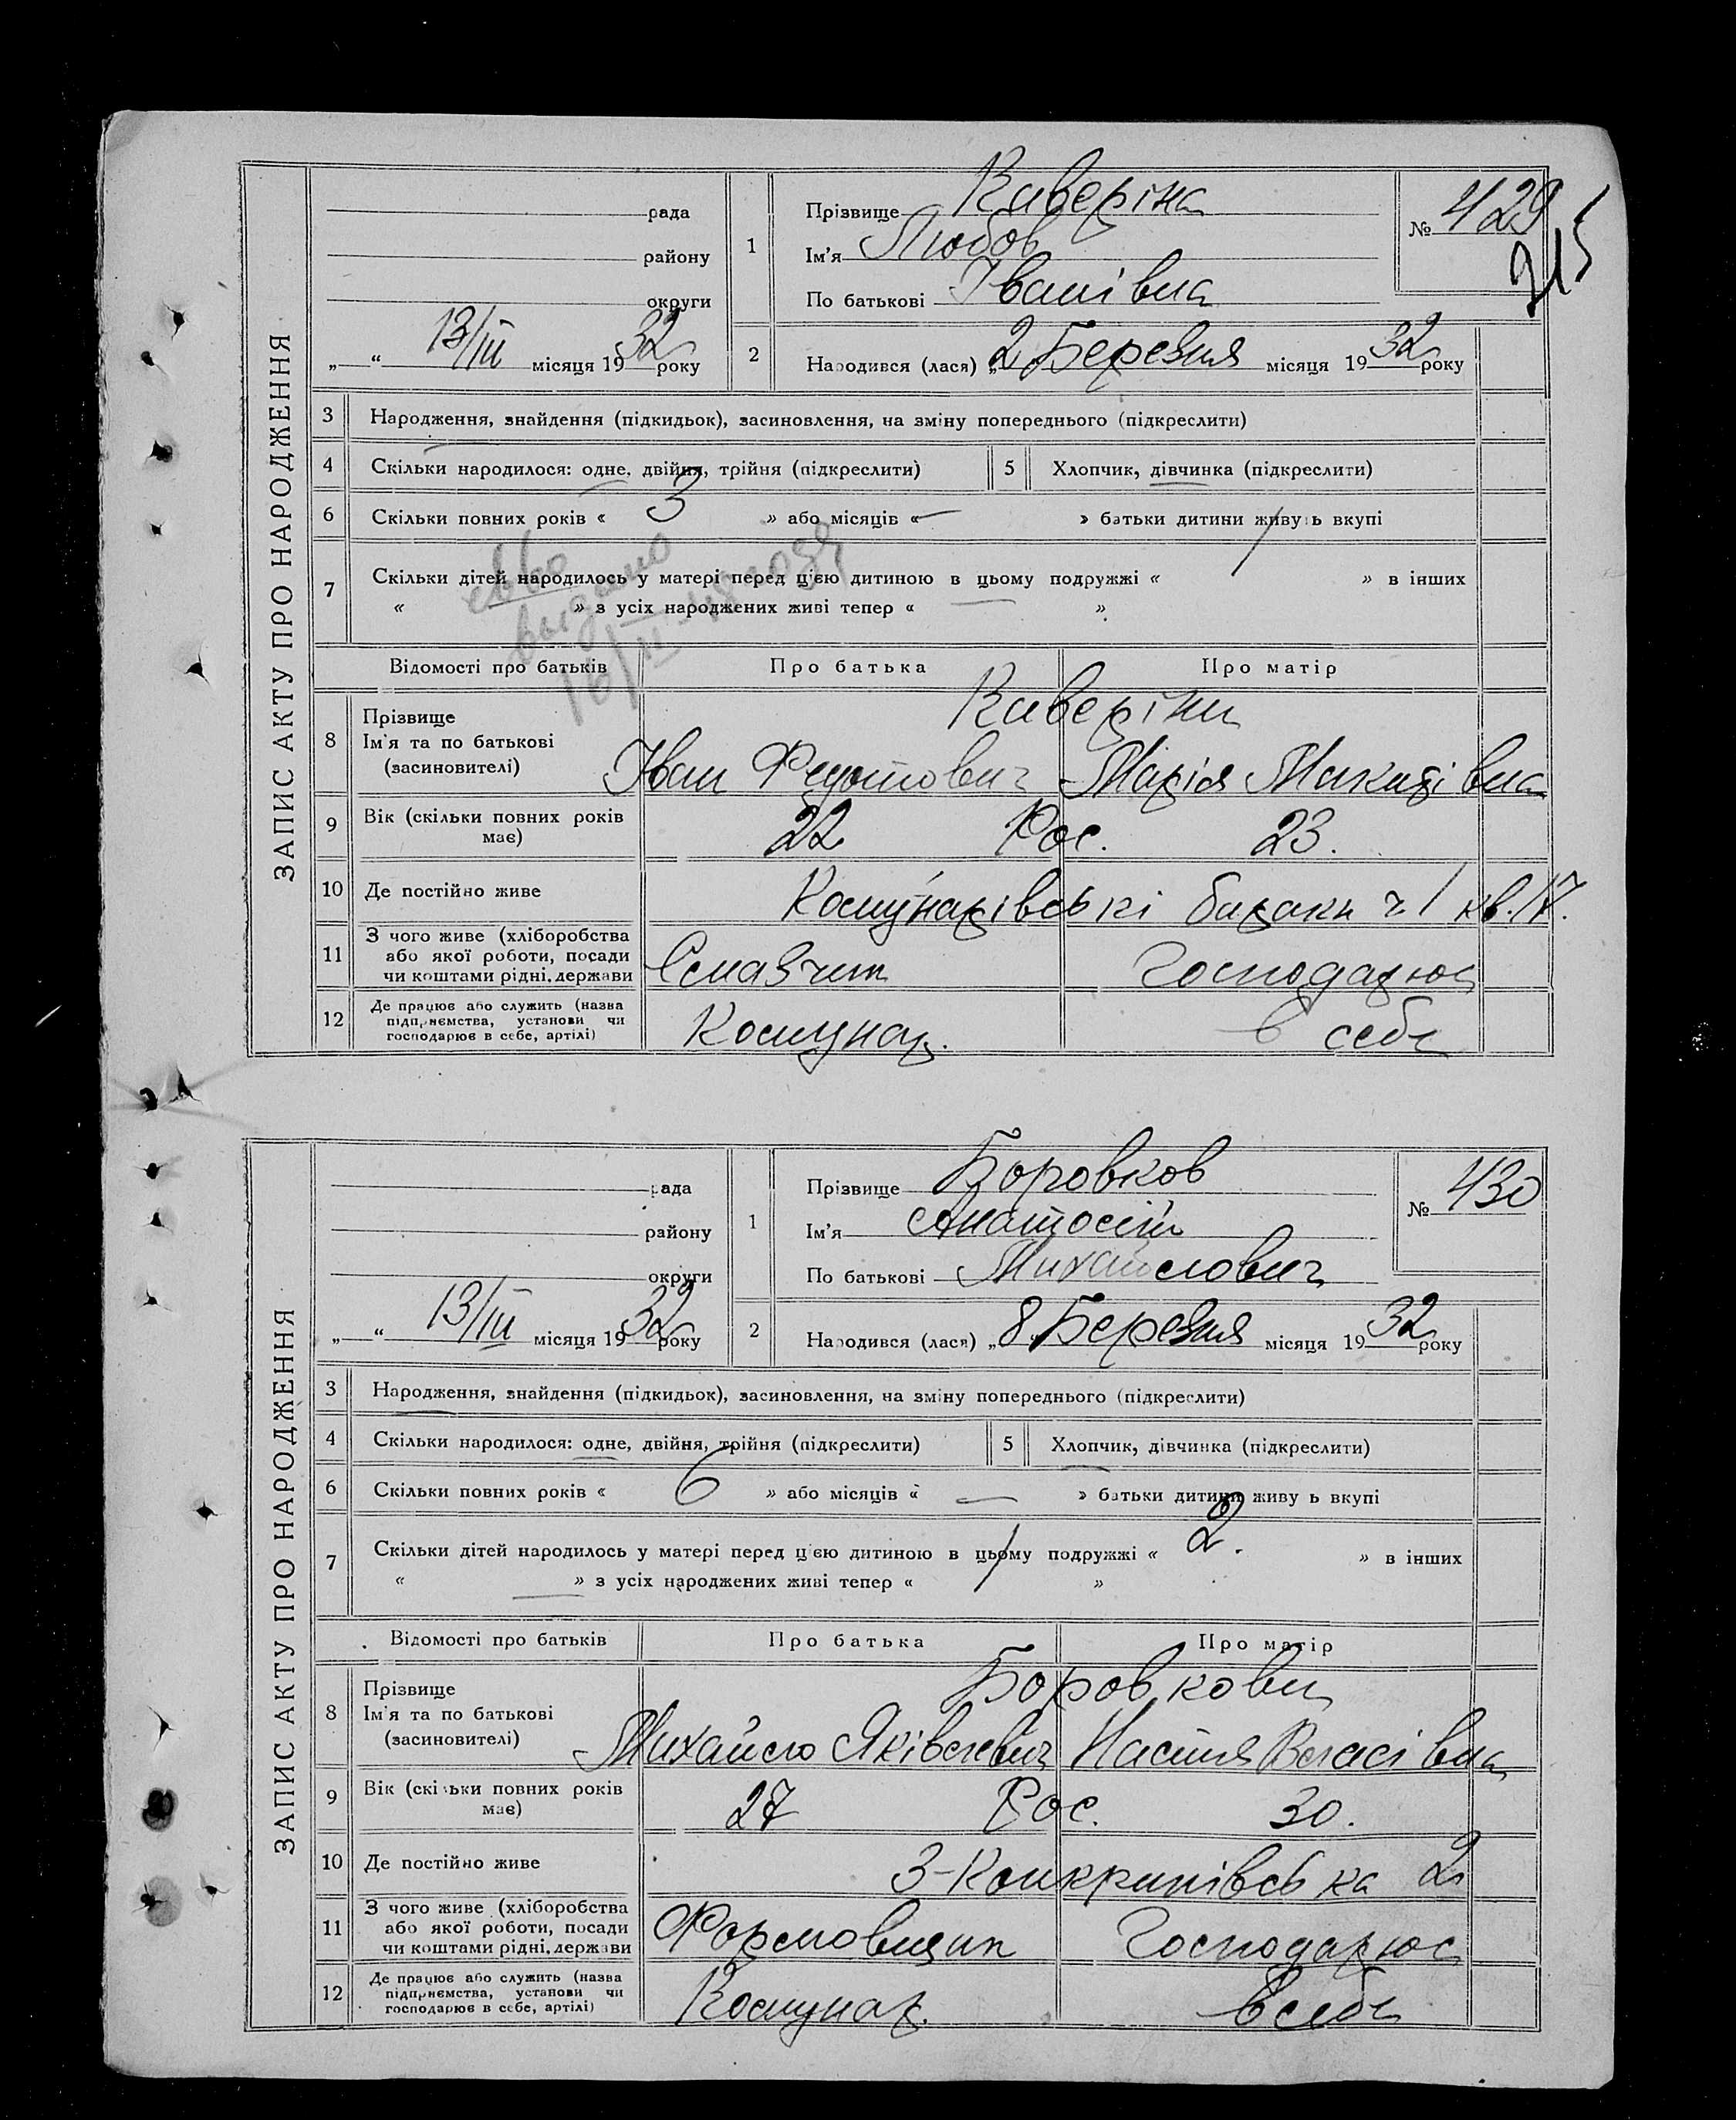 ЗАПИС АКТУ ПРО НАРОДЖЕННЯ
рада
району
округи
„ “ 13/III місяця 1932 року
1 Прізвище Каверіна
Ім'я Любов
По батькові Іванівна
№ 429
215
2 Народився (лася) „2„ Березня місяця 1932 року
3 Народження, знайдення (підкидьок), засиновлення, на зміну попереднього (підкреслити)
4 Скільки народилося: одне, двійня, трійня (підкреслити) 5 Хлопчик, дівчинка (підкреслити)
6 Скільки повних років « 3 » або місяців « — » батьки дитини живуть вкупі
7 Скільки дітей народилось у матері перед цією дитиною в цьому подружжі « / » в інших
« » з усіх народжених живі тепер « — »
выдано
16/II
Відомості про батьків Про батька Про матір
8 Прізвище
Ім'я та по батькові
(засиновителі)
Каверіни
Іван Федотович Марія Макарівна
9 Вік (скільки повних років має) 22 Рос. 23.
10 Де постійно живе Комунарівські бараки ч. 1 кв. 17.
11 З чого живе (хліборобства
або якої роботи, посади
чи коштами рідні, держави
Смазчик Господарює
12 Де працює або служить (назва
підприємства, установи чи
господарює в себе, артілі)
Комунар. в себе
ЗАПИС АКТУ ПРО НАРОДЖЕННЯ
рада
району
округи
„ “ 13/III місяця 1932 року
1 Прізвище Боровков
Ім'я Анатолій
По батькові Михайлович
№ 430
2 Народився (лася) „8„ Березня місяця 1932 року
3 Народження, знайдення (підкидьок), засиновлення, на зміну попереднього (підкреслити)
4 Скільки народилося: одне, двійня, трійня (підкреслити) 5 Хлопчик, дівчинка (підкреслити)
6 Скільки повних років « 6 » або місяців « — » батьки дитини живу ь вкупі
7 Скільки дітей народилось у матері перед цією дитиною в цьому подружжі « 2. » в інших
« — » з усіх народжених живі тепер « / »
Відомості про батьків Про батька Про матір
8 Прізвище
Ім'я та по батькові
(засиновителі)
Боровкови
Михайло Яківлевич Настя Власівна
9 Вік (скільки повних років має) 27 Рос. 30.
10 Де постійно живе 3-Конкринівська 2
11 З чого живе (хліборобства
або якої роботи, посади
чи коштами рідні, держави
Формовщик Господарює
12 Де працює або служить (назва
підприємства, установи чи
господарює в себе, артілі)
Комунар. в себе